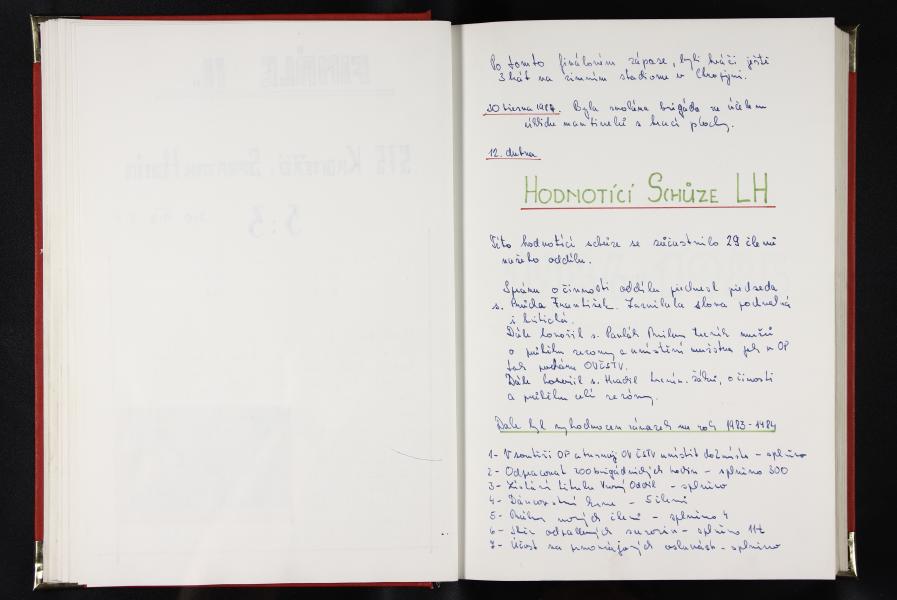 Po tomto finálovém zápase, byli hráči ještě
3 krát na zimním stadionu v Chropyni.
20 března 1984. Byla svolána brigáda za účelem
úklidu mantinelů s hrací plochy.
12. dubna
HODNOTÍCÍ SCHŮZE LH
Této hodnotící schůze se zúčastnilo 29 členů
našeho oddílu.
Zprávu o činnosti oddílu přednesl předseda
s. František. Zazněla slova pochvalná
i kritická.
Dále hovořil s. Pavlák trenér mužů
o průběhu sezony a umístění mužstva jak v OP
tak poháru OV ČSTV.
Dále hovořil s. Hradil trenér. žáků, o činosti
a průběhu celé sezóny.
Dále byl vyhodnocen závazek na rok 1983 - 1984
1- V soutěži OP a turnaj OV ČSTV umístit do - splněno
2- Odpracovat 200 brigádnických hodin - splněno 300
3- Získání titulu Vzorný Oddíl - splněno
4- Dárcovství krve - 5 členů
5- Nábor nových členů - splněno 4
6- Sběr odpadových surovin - splněno
7- Účast na prvomájových oslavách - splněno
FINÁLE
STS : SPARTAK HULÍN
5 : 3